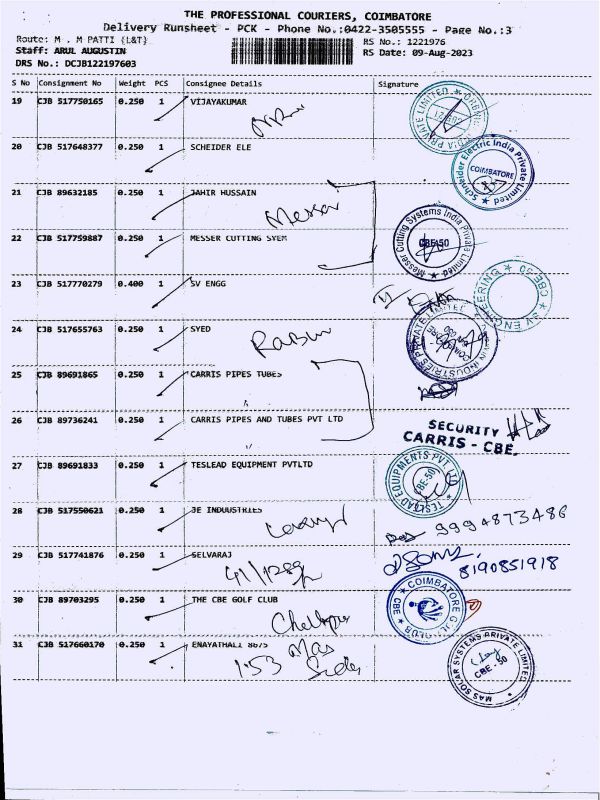 THE PROFESSIONAL COURIERS, COIMBATORE
Delivery Runsheet - PCK - Phone No.:0422-3505555 - Page No.:3
Route: M . M PATTI (L&T)
RS No.: 1221976
Staff: ARUL AUGUSTIN
RS Date: 09-Aug-2023
DRS No.: DCJB122197603
S No Consignment No Weight PCS Consignee Details Signature
19 CJB 517750165 0.250 1 VIJAYAKUMAR
20 CJB 517648377 0.250 1 SCHEIDER ELE
Schneider Electric India Private Limited
COIMBATORE
21 CJB 89632185 0.250 1 JAHIR HUSSAIN
Messer
22 CJB 517759887 0.250 1 MESSER CUTTING SYEM
Messer Cutting Systems India Private Limited
CBE-50
23 CJB 517770279 0.400 1 SV ENGG
SV ENGINEERING CBE-50
24 CJB 517655763 0.250 1 SYED
INDUSTRIES PRIVATE LIMITED
25 CJB 89691865 0.250 1 CARRIS PIPES TUBES
26 CJB 89736241 0.250 1 CARRIS PIPES AND TUBES PVT LTD
SECURITY
CARRIS - CBE.
27 CJB 89691833 0.250 1 TESLEAD EQUIPMENT PVTLTD
TESLEAD EQUIPMENTS PVT. LTD
CBE-50
28 CJB 517550621 0.250 1 JE INDUUSTRIES
9994873486
29 CJB 517741876 0.250 1 SELVARAJ
8190851918
30 CJB 89703295 0.250 1 THE CBE GOLF CLUB
COIMBATORE GOLF CLUB CBE
31 CJB 517660170 0.250 1 ENAYATHALI 8675
1:53 Mas
MAS SOLAR SYSTEMS PRIVATE LIMITED
CBE - 50